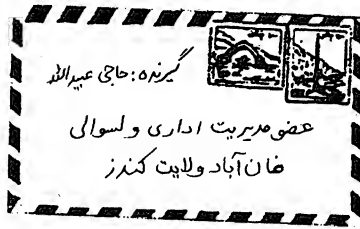 گیرنده: حاجی عبیدالله
عضو مدیریت اداری ولسوالی
خان آباد ولایت کندز